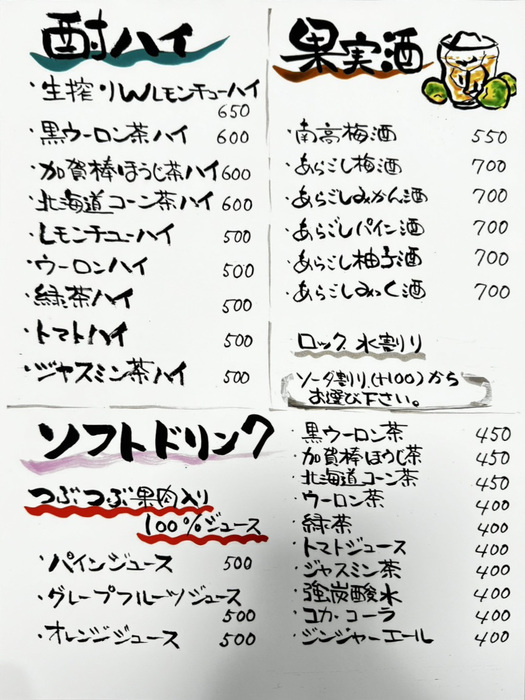 酎ハイ
・生搾りWレモンチューハイ
650
・黒ウーロン茶ハイ 600
・加賀棒ほうじ茶ハイ 600
・北海道コーン茶ハイ 600
・レモンチューハイ 500
・ウーロンハイ 500
・緑茶ハイ 500
・トマトハイ 500
・ジャスミン茶ハイ 500
果実酒
・南高梅酒 550
・あらごし梅酒 700
・あらごしみかん酒 700
・あらごしパイン酒 700
・あらごし柚子酒 700
・あらごしみっく酒 700
ロック 水割り
ソーダ割り(+100)から
お選び下さい。
ソフトドリンク
つぶつぶ果肉入り
100%ジュース
・パインジュース 500
・グレープフルーツジュース
500
・オレンジジュース 500
・黒ウーロン茶 450
・加賀棒ほうじ茶 450
・北海道コーン茶 450
・ウーロン茶 400
・緑茶 400
・トマトジュース 400
・ジャスミン茶 400
・強炭酸水 400
・コカ・コーラ 400
・ジンジャーエール 400